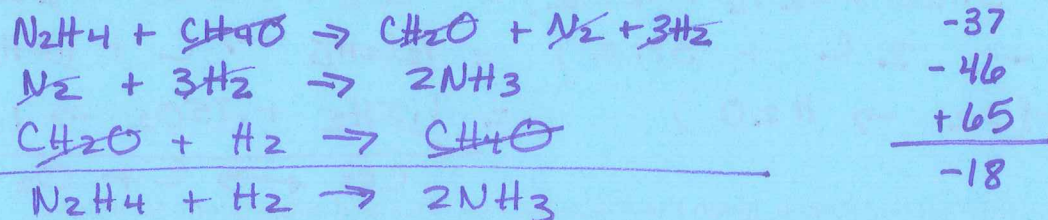 N2H4 + CH4O → CH2O + N2 + 3H2 -37
N2 + 3H2 → 2NH3 -46
CH2O + H2 → CH4O +65
N2H4 + H2 → 2NH3 -18